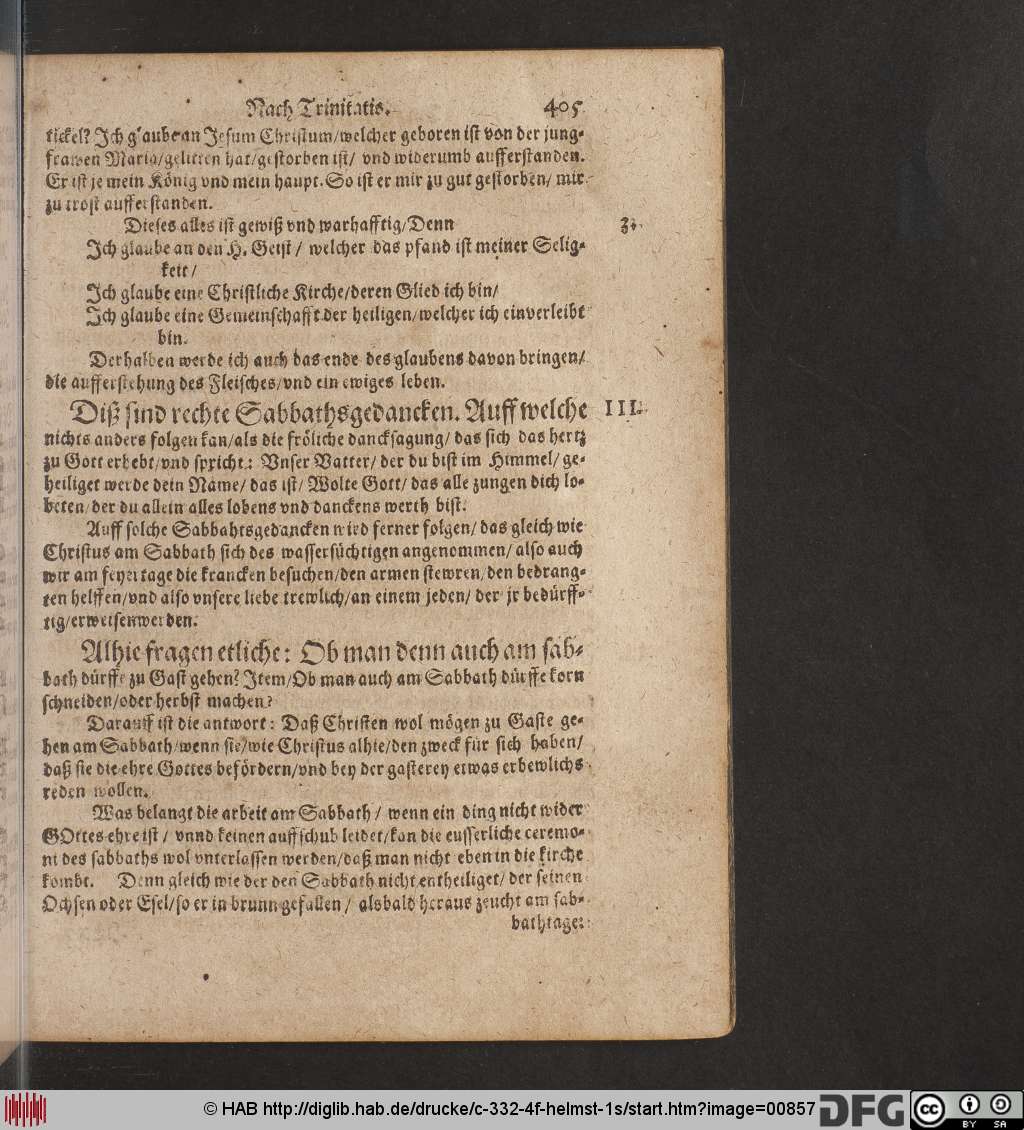 Nach Trinitatis. 405
tickel? Ich glaube an Jesum Christum/welcher geboren ist von der jung-
frawen Maria/gelitten hat/gestorben ist/ vnd widerumb aufferstanden.
Er ist je mein König vnd mein haupt. So ist er mir zu gut gestorben/ mir
zu trost aufferstanden.
Dieses alles ist gewiß vnd warhafftig/Denn 3.
Ich glaube an den H. Geist / welcher das pfand ist meiner Selig-
keit/
Ich glaube eine Christliche Kirche/deren Glied ich bin/
Ich glaube eine Gemeinschafft der heiligen/welcher ich einverleibt
bin.
Derhalben werde ich auch das ende des glaubens davon bringen/
die aufferstehung des Fleisches/vnd ein ewiges leben.
Diß sind rechte Sabbathsgedancken. Auff welche III.
nichts anders folgen kan/als die fröliche dancksagung/ das sich das hertz
zu Gott erhebt/vnd spricht: Vnser Vatter/ der du bist im Himmel/ ge-
heiliget werde dein Name/ das ist/ Wolte Gott/ das alle zungen dich lo-
beten/der du allein alles lobens vnd danckens werth bist.
Auff solche Sabbahtsgedancken wird ferner folgen/ das gleich wie
Christus am Sabbath sich des wassersüchtigen angenommen/ also auch
wir am feyertage die krancken besuchen/den armen stewren/den bedrang-
ten helffen/vnd also vnsere liebe trewlich/an einem jeden/ der jr bedürff-
tig/erweisen werden.
Alhie fragen etliche: Ob man denn auch am sab-
bath dürffe zu Gast gehen? Item/Ob man auch am Sabbath dürffe korn
schneiden/oder herbst machen?
Darauff ist die antwort: Daß Christen wol mögen zu Gaste ge-
hen am Sabbath/wenn sie/wie Christus alhie/den zweck für sich haben/
daß sie die ehre Gottes befördern/vnd bey der gasterey etwas erbewlichs
reden wollen.
Was belangt die arbeit am Sabbath / wenn ein ding nicht wider
GOttes ehre ist / vnnd keinen auffschub leidet/kan die eusserliche ceremo-
ni des sabbaths wol vnterlassen werden/daß man nicht eben in die kirche
kombt. Denn gleich wie der den Sabbath nicht entheiliget/ der seinen
Ochsen oder Esel/so er in brunn gefallen / alsbald heraus zeucht am sab-
bathtage:
© HAB http://diglib.hab.de/drucke/c-332-4f-helmst-1s/start.htm?image=00857
DFG
cc
BY SA